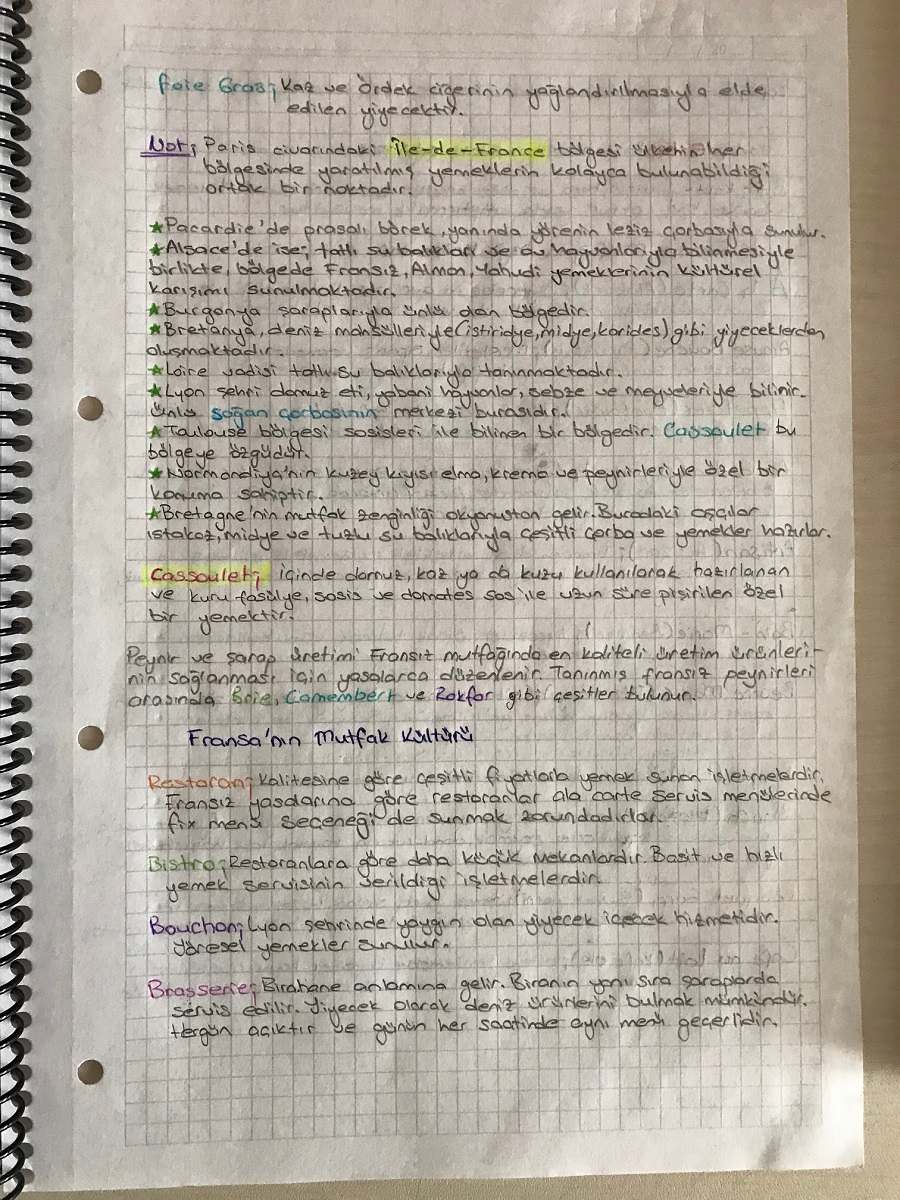 foie Gras; Kaz ve ördek ciğerinin yağlandırılmasıyla elde
edilen yiyecektir.
Not; Paris civarındaki Île-de-France bölgesi ülkenin her
bölgesinde yaratılmış yemeklerin kolayca bulunabildiği
ortak bir noktadır.
★Pacardie'de prasalı börek, yanında yörenin leziz çorbasıyla sunulur.
★Alsace'de ise; tatlı su balıkları ve av hayvanlarıyla bilinmesiyle
birlikte, bölgede Fransız, Alman, Yahudi yemeklerinin kültürel
karışımı sunulmaktadır.
★Burgonya şaraplarıyla ünlü olan bölgedir.
★Bretanya, deniz mahsülleriyle (istiridye, midye, karides) gibi yiyeceklerden
oluşmaktadır.
★Loire vadisi tatlı su balıklarıyla tanınmaktadır.
★Lyon şehri domuz eti, yabani hayvanlar, sebze ve meyveleriyle bilinir.
Ünlü soğan çorbasının merkezi burasıdır.
★Toulouse bölgesi sosisleri ile bilinen bir bölgedir. Cassoulet bu
bölgeye özgüdür.
★Normandiya'nın kuzey kıyısı elma, krema ve peynirleriyle özel bir
konuma sahiptir.
★Bretagne'nin mutfak zenginliği okyanustan gelir. Buradaki aşçılar
ıstakoz, midye ve tuzlu su balıklarıyla çeşitli çorba ve yemekler hazırlar.
Cassoulet; içinde domuz, kaz ya da kuzu kullanılarak hazırlanan
ve kuru fasülye, sosis ve domates sos ile uzun süre pişirilen özel
bir yemektir.
Peynir ve şarap üretimi Fransız mutfağında en kaliteli üretim ürünleri-
nin sağlanması için yasalarca düzenlenir. Tanınmış fransız peynirleri
arasında Brie, Camembert ve Rokfor gibi çeşitler bulunur.
Fransa'nın Mutfak Kültürü
Restoran; Kalitesine göre çeşitli fiyatlarla yemek sunan işletmelerdir.
Fransız yasalarına göre restoranlar ala carte servis menülerinde
fix menü seçeneği de sunmak zorundadırlar.
Bistro; Restoranlara göre daha küçük mekanlardır. Basit ve hızlı
yemek servisinin verildiği işletmelerdir.
Bouchon; Lyon şehrinde yaygın olan yiyecek içecek hizmetidir.
Yöresel yemekler sunulur.
Brasserie; Birahane anlamına gelir. Biranın yanı sıra şaraplarda
servis edilir. Yiyecek olarak deniz ürünlerini bulmak mümkündür.
Hergün açıktır ve günün her saatinde aynı menü geçerlidir.